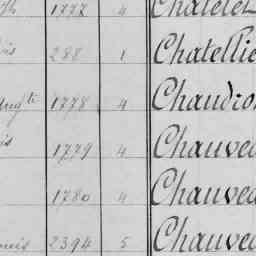 1777 4 Châtelet
288 1 Chatellie
1778 4 Chaudro
is 1779 4 Chauvea
1780 4 Chauvea
2394 5 Chauvea